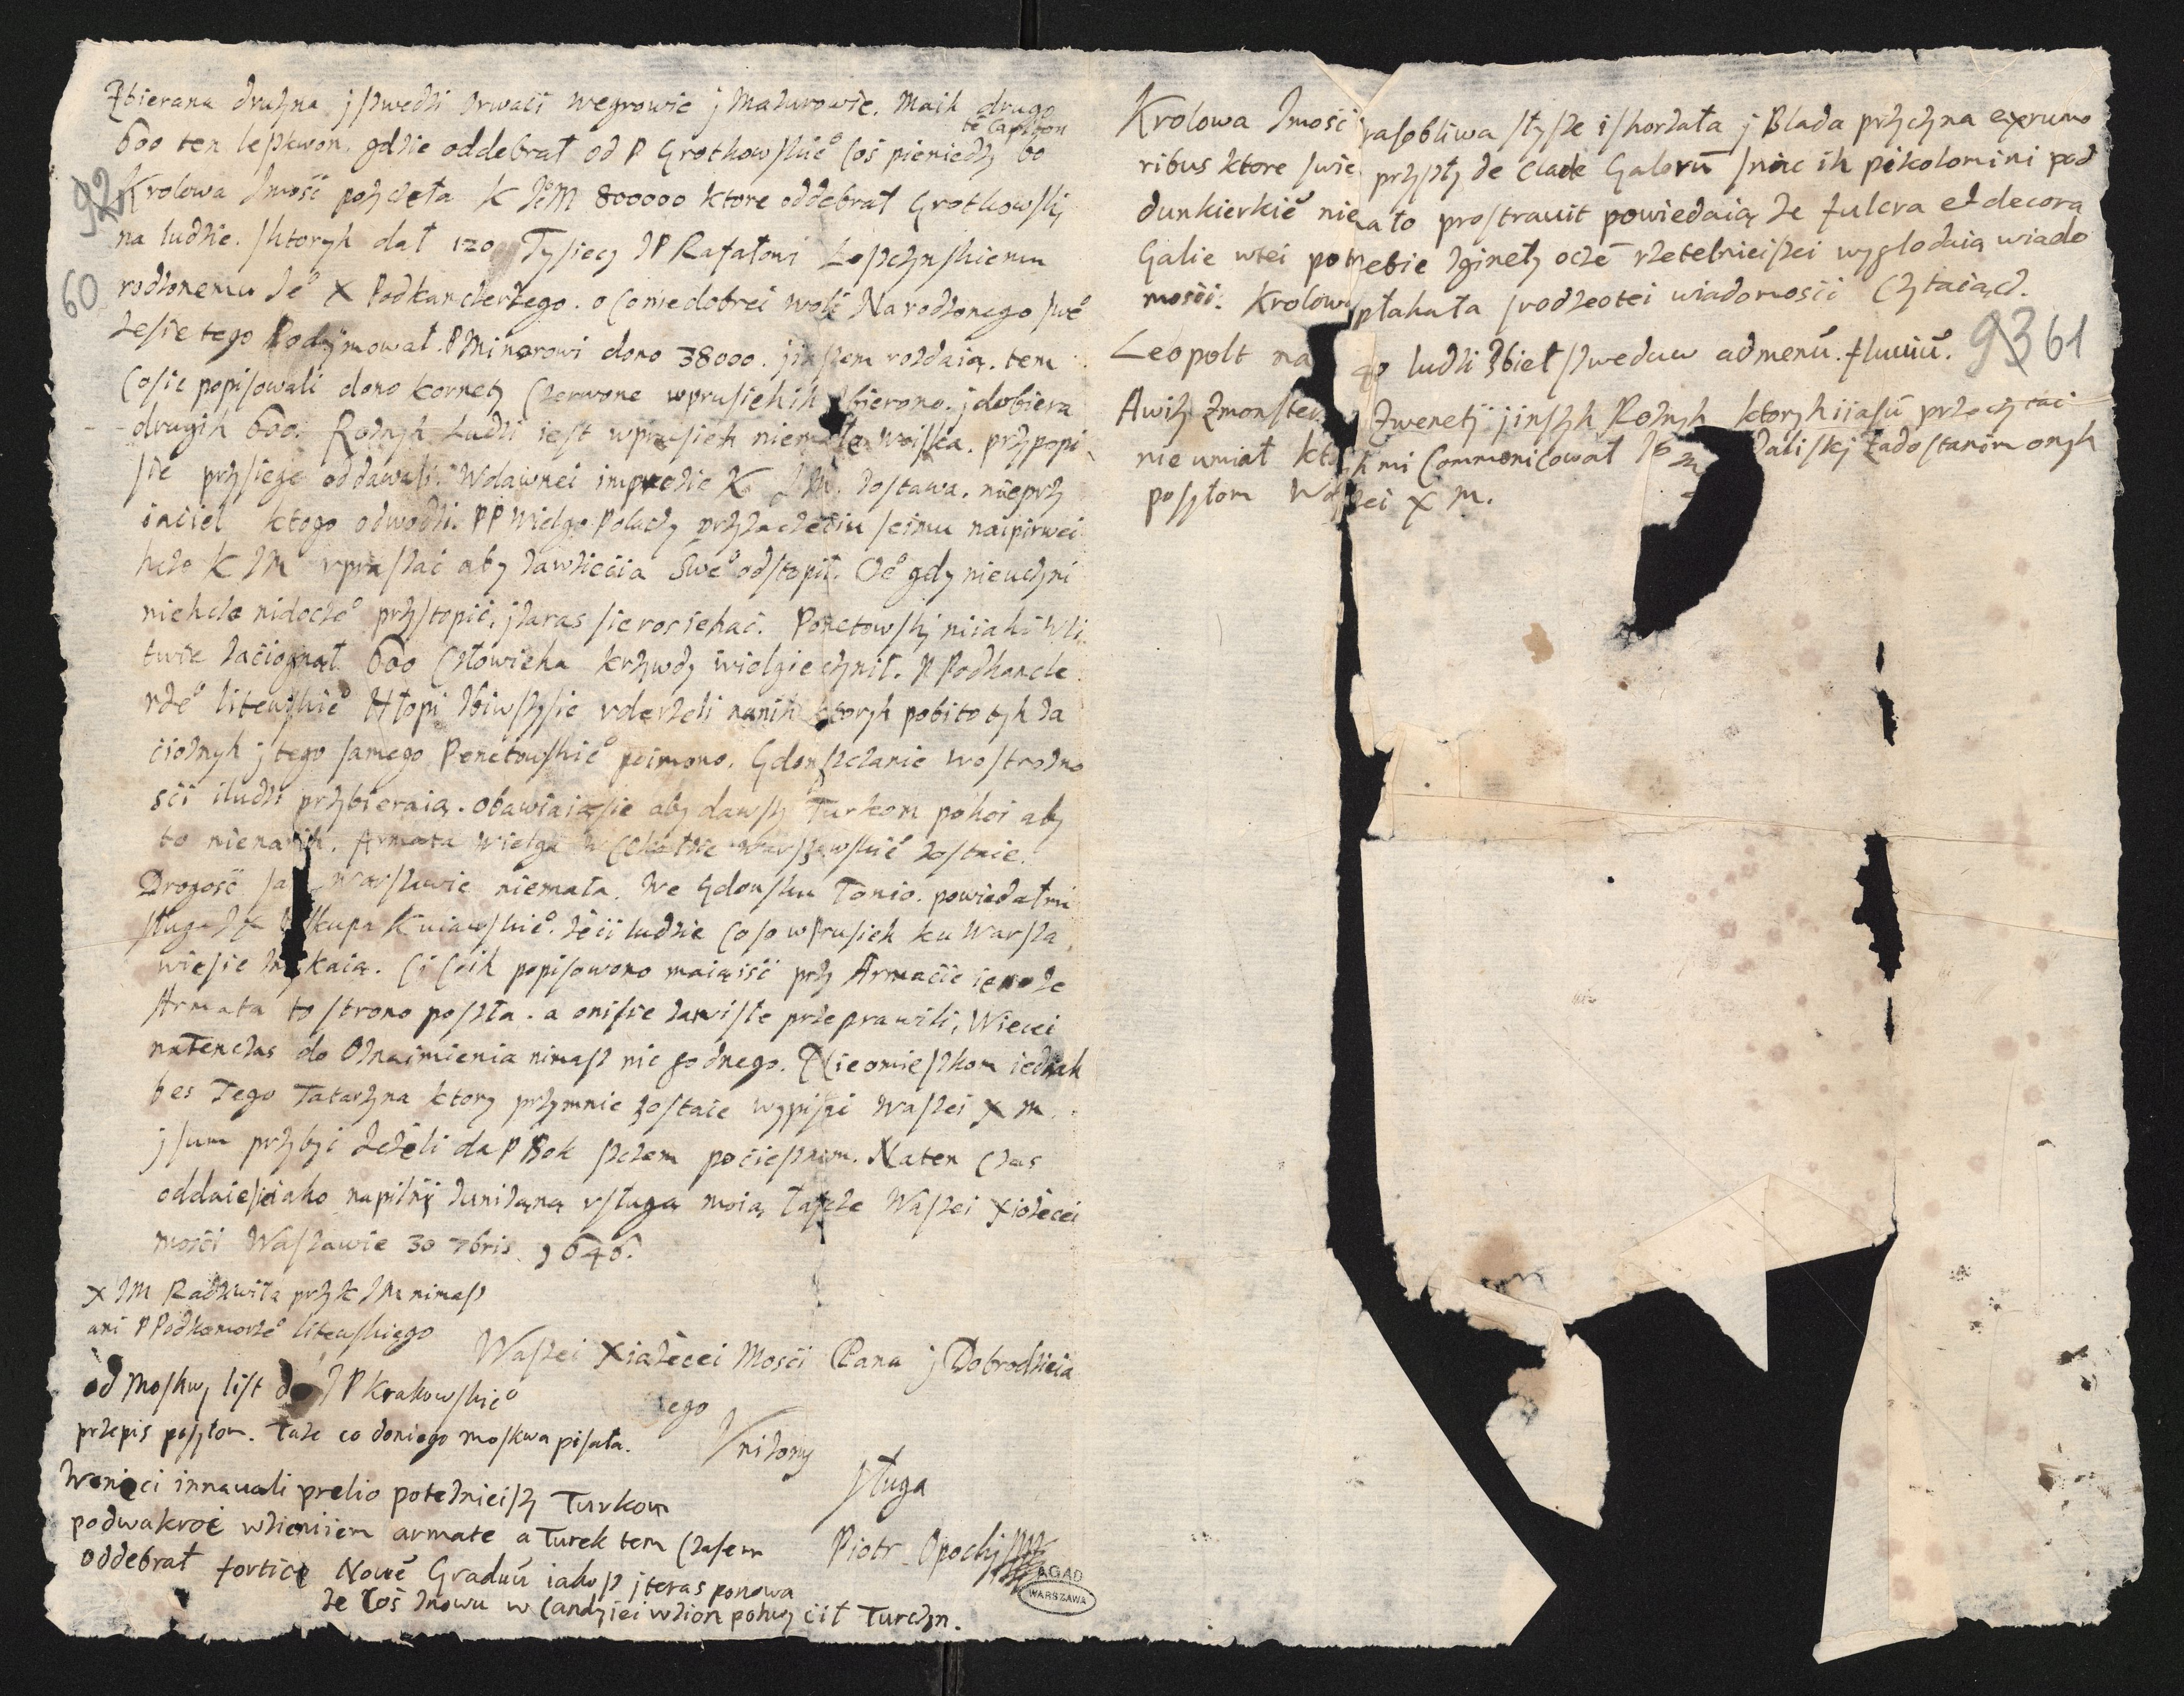 Zbierana druzna j szwedzi krwaci wegrowie j Mazurowie. Maik drugo
te Capitan
600 ten leszkwon. gdzie oddebrał od P Grotkowskie° Coś pieniedzy bo
92
Krolowa Jmość pozyczeła K JeM 800000 ktore oddebrał Grotkowskj
na ludzie. sktoryh dał 120 Tysiecy JP Rafałowi Leszczynskiemu
60
rodzonemu Je° X Podkanclerzego. o Co niedobrei woli Narodzonego swe°
ze sie tego Podjmował. P Minorowi dono 38000. jinszem rozdaią. tem
Co sie popisowali dono kornety Czerwone wprusiehih zbierono. j dobiera
drugih 600. Roznyh Ludzi iest wprusieh niemało woiska. przy popi
sie przysiege oddawali. Wdawnei imprezie K JM. zostawa. nieprzy
iaciel ktogo odwodzi. PP Wielgo Polacy przy zaczeciu seimu naipirwei
hczo K JM vpraszać aby zawziecia swe° odstopił. Cze° gdy nieuczyni
niehczo nidocze° przystopić, j zaras sie rosiehać. Ponetowskj niiaki wli
twie zaciognął 600 Człowieka krzywdy wielgie czynił. P Podkancle
rze° litewskie° Hłopi zbiwszysie vderzeli nanih ktoryh pobito tyh za
ciożnyh j tego samego Ponetowskie° poimono. Gdonszczanie wostrozno
sci iludzi przybieraią. obawiaiąsie aby dawszy Turkom pokoi aby
to nienanih. Armata Wielga w Cekałzie warszawskie° zostaie.
Drogość sa Warszawie niemała. We Gdonsku Tonio. powiedał mi
sługa JX biskupa Kuiawskie°. ze ci ludzie Co so w Prusieh ku Warsza
wie sie zmykaią. Ci Coih popisowono maią iść przy Armacie ieno ze
Armata to strono poszła. a oni sie zawisłe przeprawili, Wiecei
natenczas do Oznaimienia nimasz nic godnego. Nie omieszkom iednak
bes Tego Tatarzyna ktory przymnie zostaie wypisai Waszei X M.
j sum przybyć Jezeli da P Bok szczem pocieszniem. Naten Czas
oddaie sie iako napilnij zunizaną vsługą moią łascze Waszei Xiozecei
mosći Waszawie 30 7bris 1646.
X JM Radziwiła przy K JM nimasz
ani P Podkomorze° litewskiego
Waszei Xiazecei Mosći Pana j Dobrodzieia
od Moskwy list do JP Krakowskie°
ego
przepis poszłom. Taze co doniego moskwa pisała.
Vnizony
sługa
Weneci innauali prelio potezniejszy Turkow
podwakroć wzieniem armate a Turek tem Czasem
Piotr Opockj
oddebrał fortice Nowe Graduu iakosz j teras ponowa
ze Coś znowu w Candyiei wzion pohwycił Turczyn.
AGAD
WARSZAWA
Krolowa Jmość frasobliwa słysze ishorzała j Blada przyczyna ex rumo
ribus ktore swie przyszły de Clade Galorum snac ih pikolomini pod
dunkierkie nie mało prostrauit powiedaią ze fulcra et decora
Galie wtei potrzebie zgineły o cze rzetelnieiszei wyglodaią wiado
mosći. Krolowa płakała srodze o tei wiadomosći Cztaiąc.
Leopolt na 40 ludzi zbieł szwedaw ad menu. fluuiu.
93 61
Awizy z monster Zwenetij j inszyh Roznyh ktoryhiiasu przeczytać
nie umiał ktoryh mi Commonicował JP daliskj zadostanim onyh
poszłom Waszei X M.